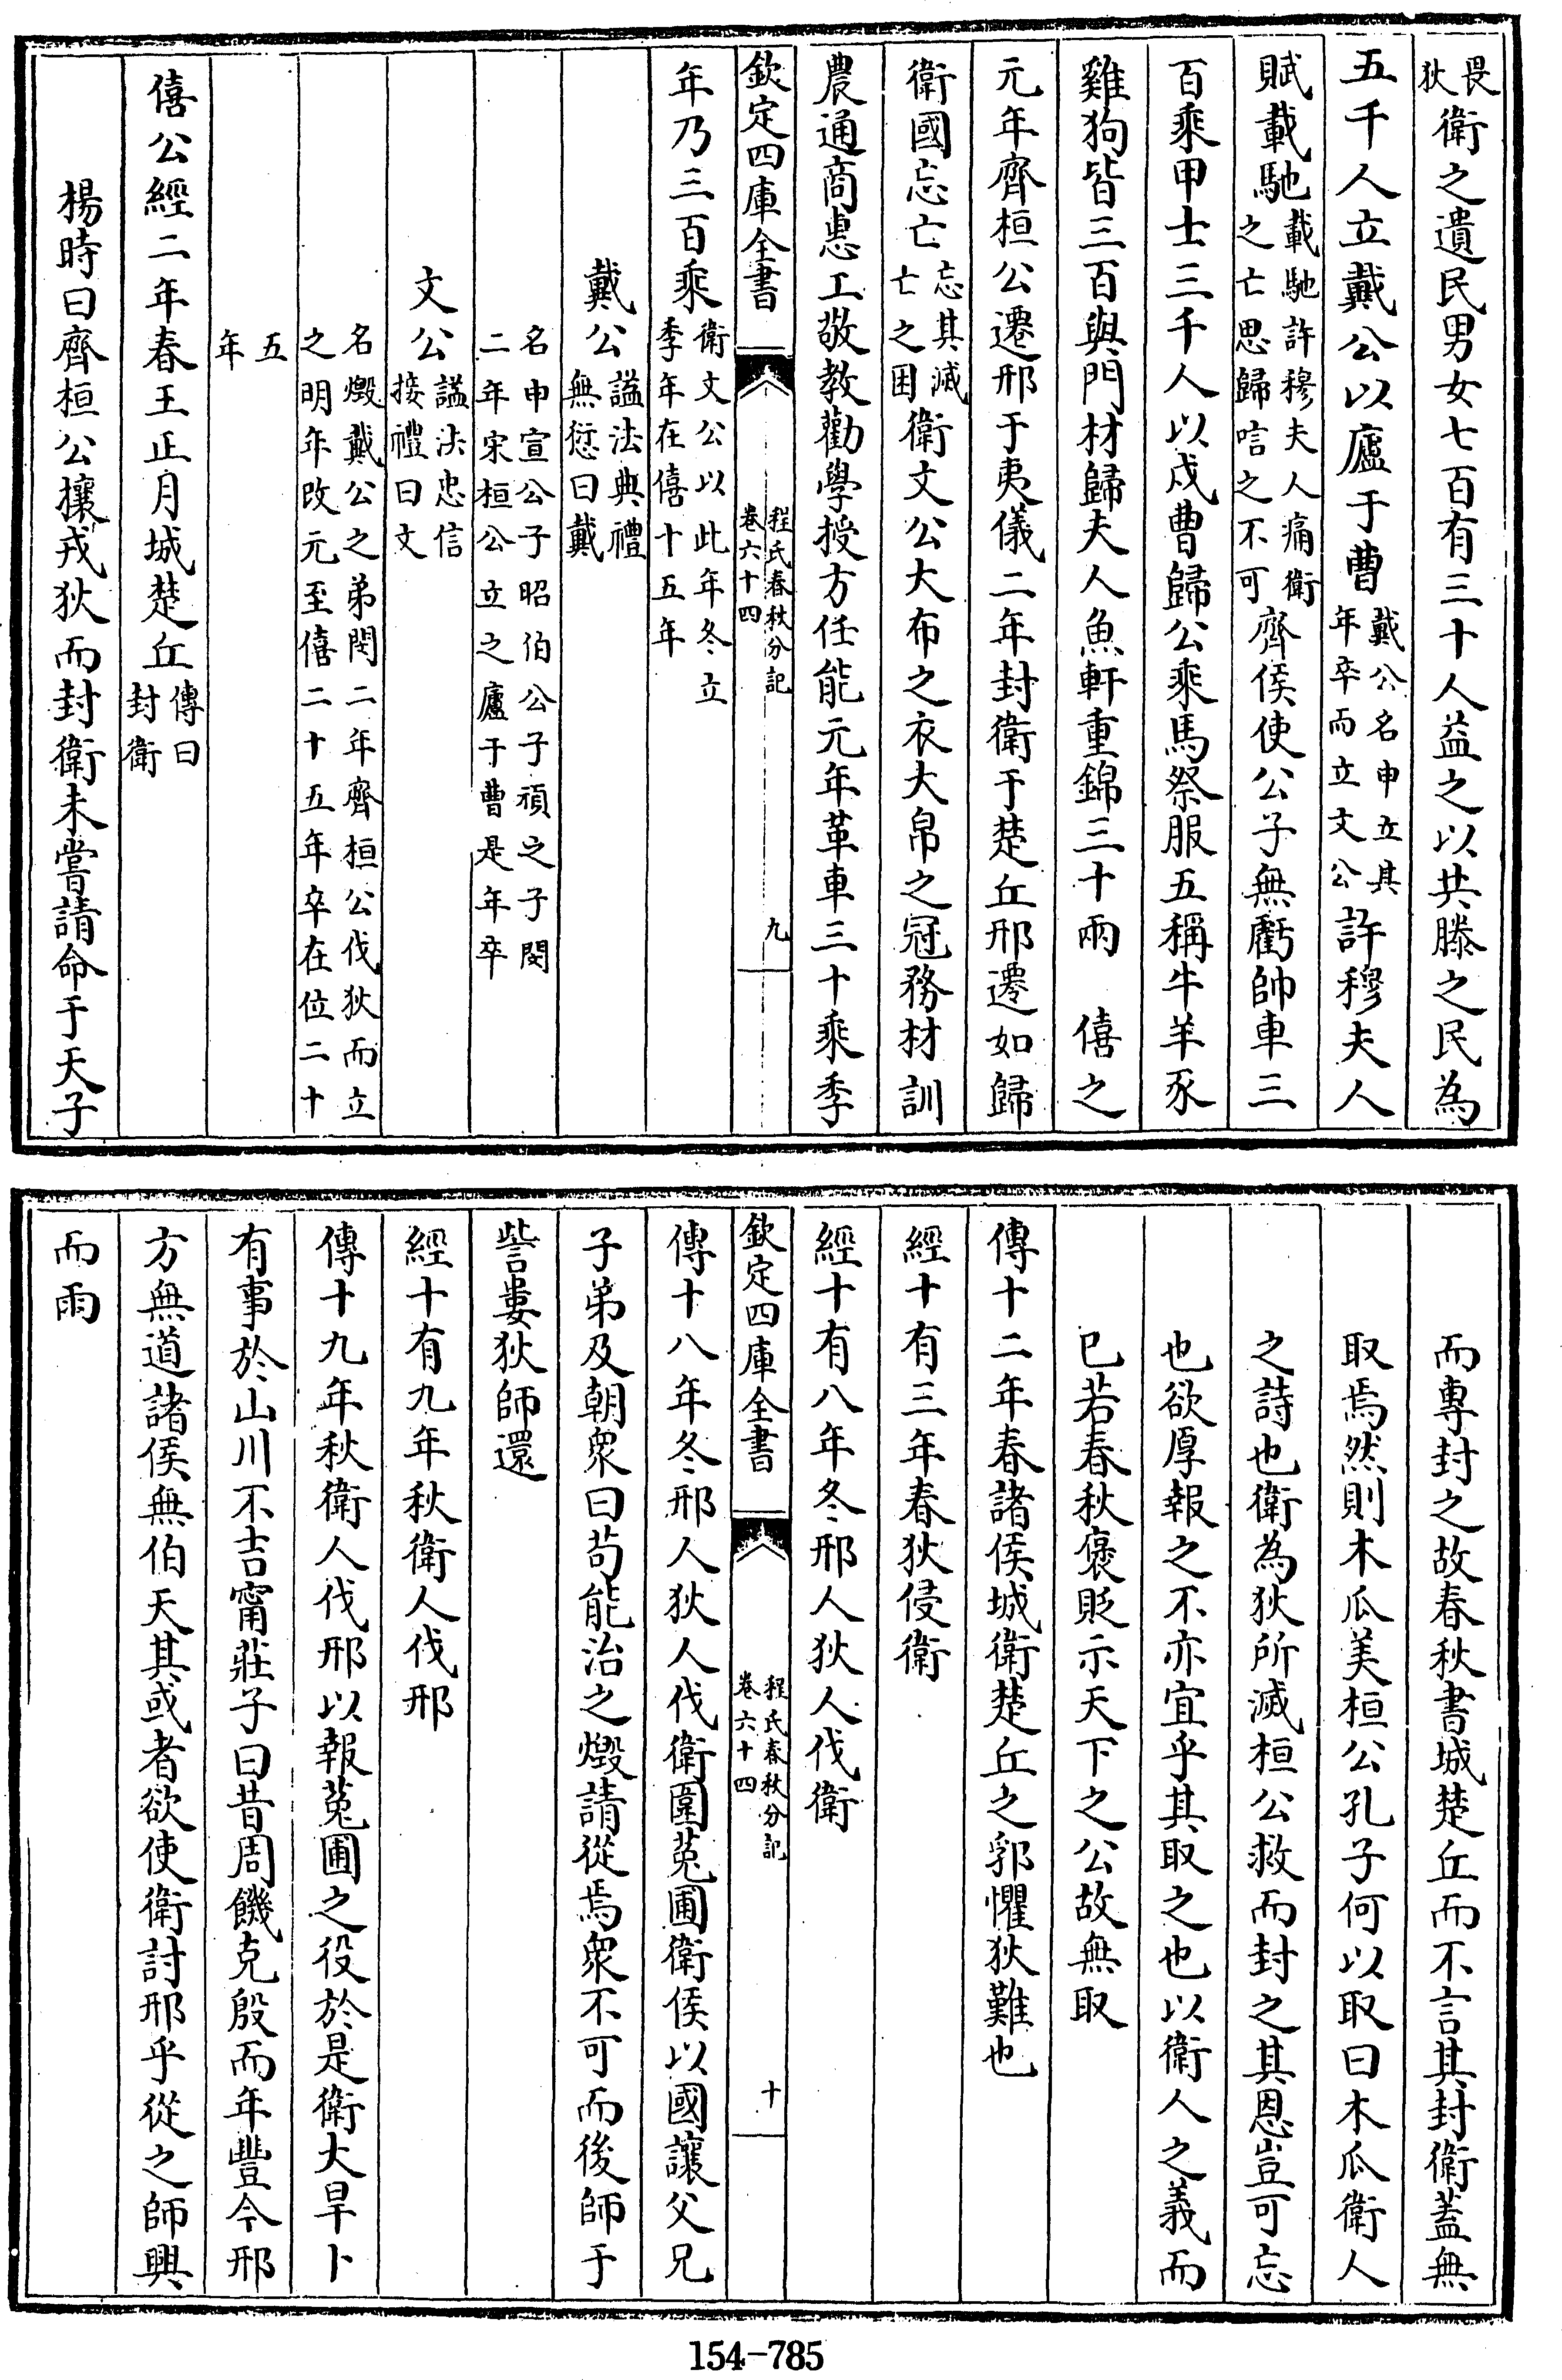 畏狄衛之遺民男女七百有三十人益之以共滕之民為
五千人立戴公以廬于曹戴公名申立其年卒而立文公許穆夫人
賦載馳載馳許穆夫人痛衛之亡思歸唁之不可齊侯使公子無虧帥車三
百乘甲士三千人以戍曹歸公乘馬祭服五稱牛羊豕
雞狗皆三百與門材歸夫人魚軒重錦三十兩 僖之
元年齊桓公遷邢于夷儀二年封衛于楚丘邢遷如歸
衛國忘亡忘其滅亡之困衛文公大布之衣大帛之冠務材訓
農通商惠工敬教勸學授方任能元年革車三十乘季
欽定四庫全書 程氏春秋分記卷六十四 九
年乃三百乘衛文公以此年冬立季年在僖十五年
戴公諡法典禮無愆曰戴
名申宣公子昭伯公子頑之子閔二年宋桓公立之廬于曹是年卒
文公諡法忠信接禮曰文
名燬戴公之弟閔二年齊桓公伐狄而立之明年改元至僖二十五年卒在位二十
五年
僖公經二年春王正月城楚丘傳曰封衛
楊時曰齊桓公攘戎狄而封衛未嘗請命于天子
而專封之故春秋書城楚丘而不言其封衛蓋無
取焉然則木瓜美桓公孔子何以取曰木瓜衛人
之詩也衛為狄所滅桓公救而封之其恩豈可忘
也欲厚報之不亦宜乎其取之也以衛人之義而
已若春秋褒貶示天下之公故無取
傳十二年春諸侯城衛楚丘之郛懼狄難也
經十有三年春狄侵衛
經十有八年冬邢人狄人伐衛
欽定四庫全書 程氏春秋分記卷六十四 十
傳十八年冬邢人狄人伐衛圍菟圃衛侯以國讓父兄
子弟及朝衆曰茍能治之燬請從焉衆不可而後師于
訾婁狄師還
經十有九年秋衛人伐邢
傳十九年秋衛人伐邢以報菟圃之役於是衛大旱卜
有事於山川不吉甯莊子曰昔周饑克殷而年豐今邢
方無道諸侯無伯天其或者欲使衛討邢乎從之師興
而雨
154-785